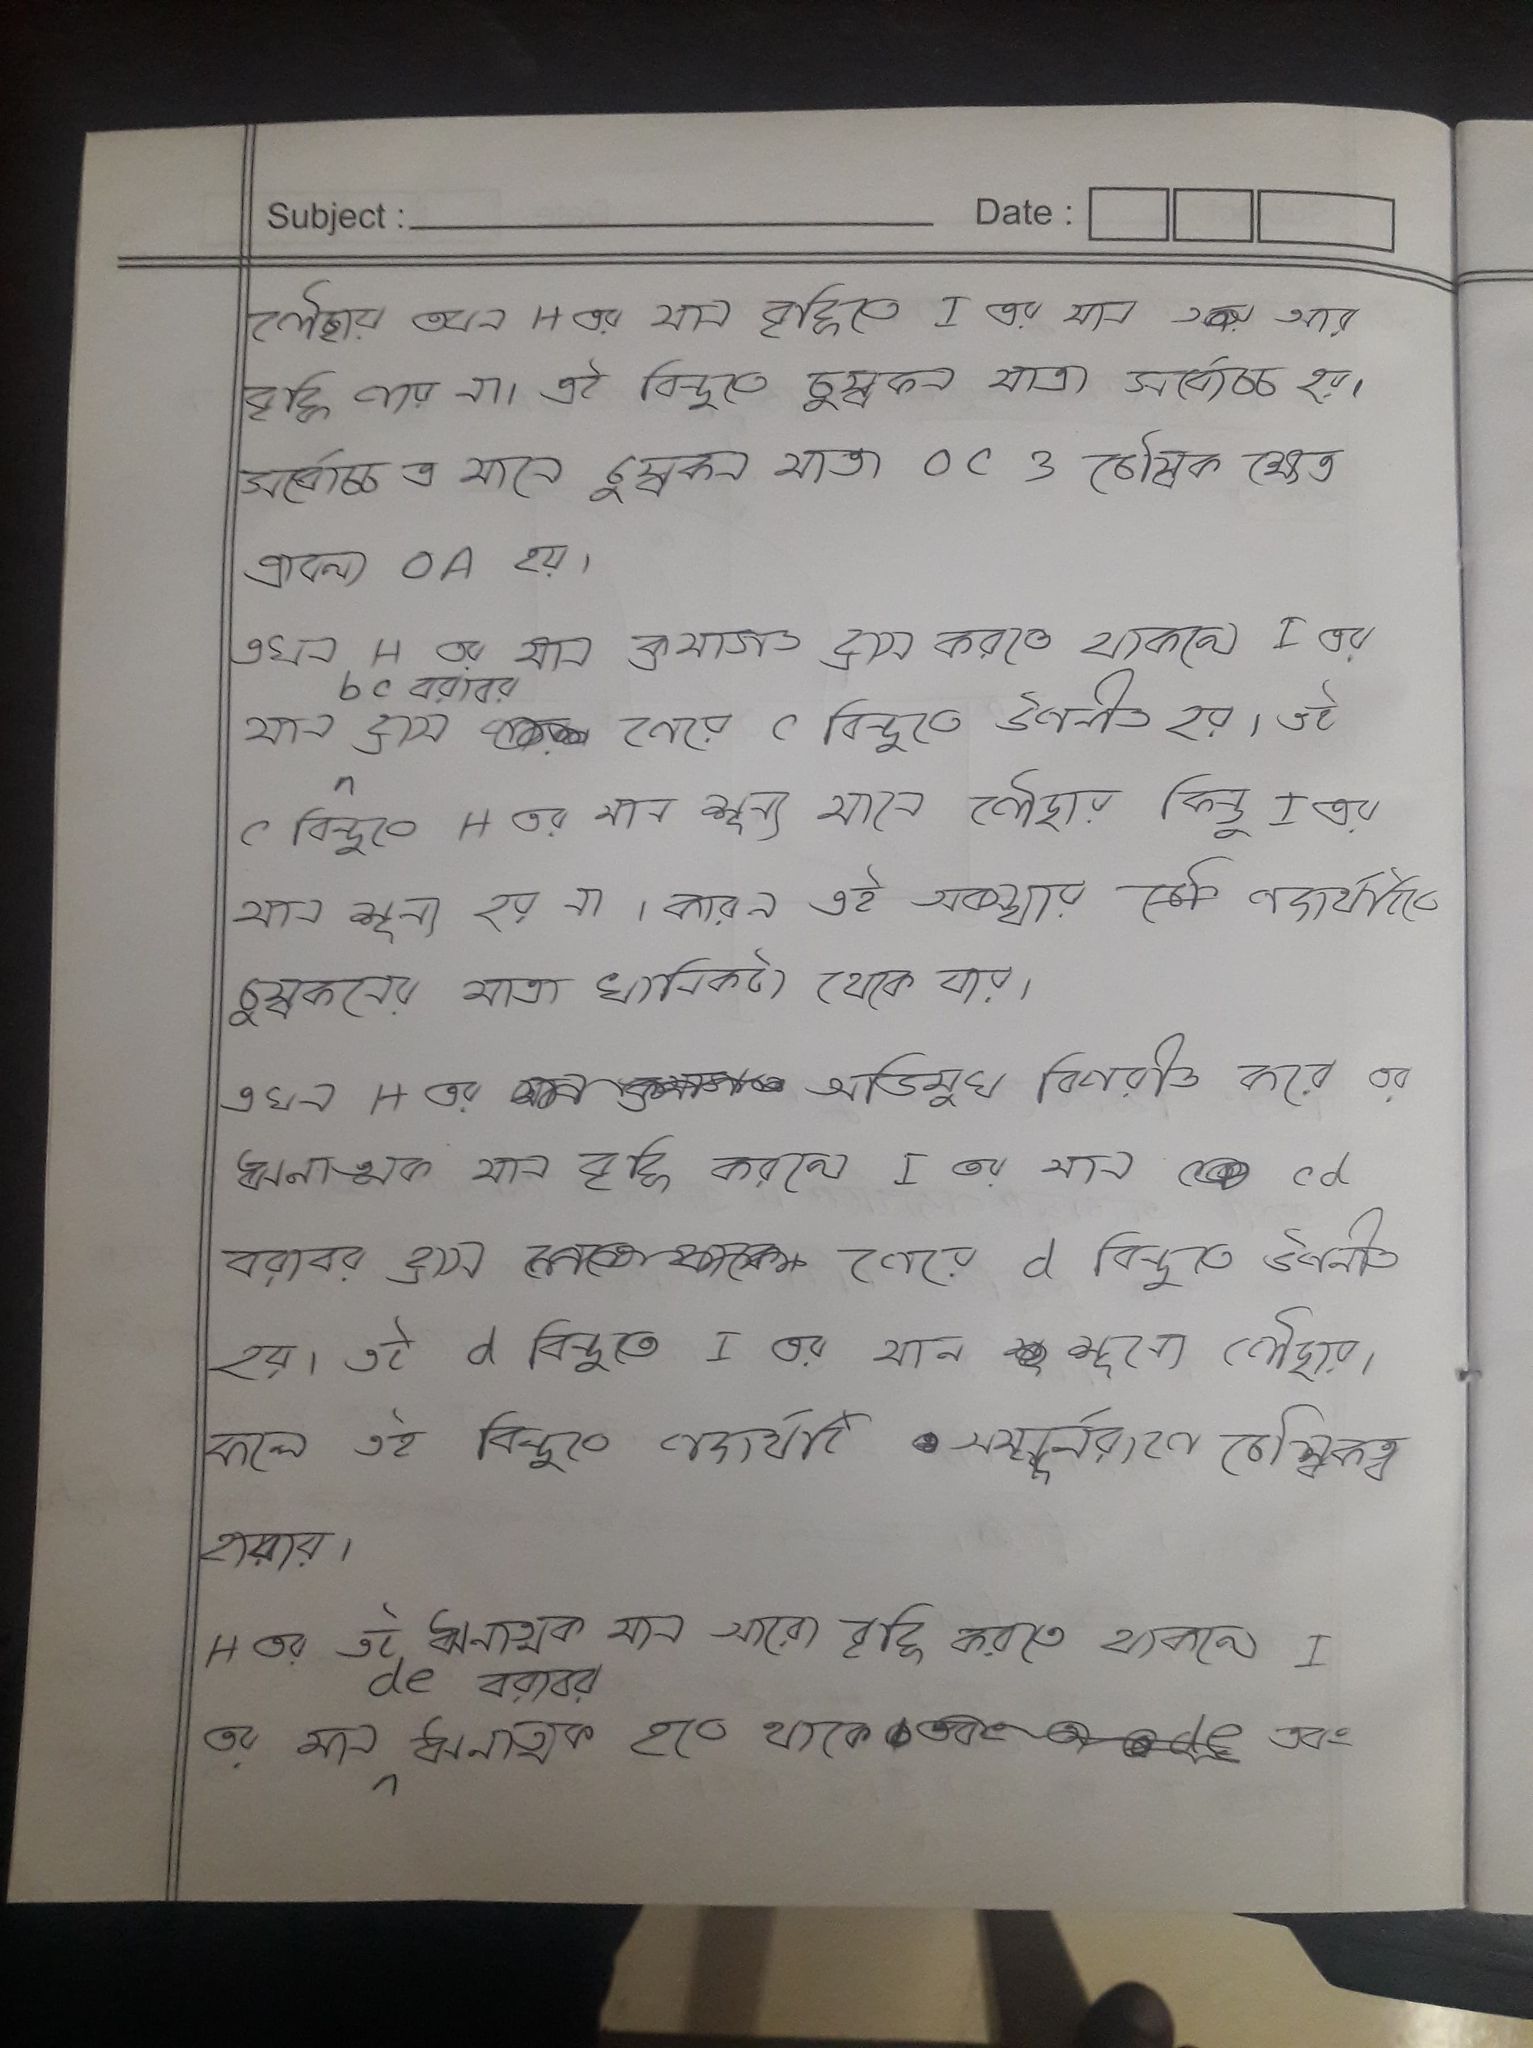 Subject :
Date :
পৌছায় তখন H এর মান বৃদ্ধিতে I এর মান আর
বৃদ্ধি পায় না। এই বিন্দুতে চুম্বকন মাত্রা সর্বোচ্চ হয়।
সর্বোচ্চ এ মানে চুম্বকন মাত্রা OC ও চৌম্বক ক্ষেত্র
প্রাবল্য OA হয়।
এখন H এর মান ক্রমাগত হ্রাস করতে থাকলে I এর
মান হ্রাস bc বরাবর পেয়ে c বিন্দুতে উপনীত হয়। এই
c বিন্দুতে H এর মান শূন্য মানে পৌছায় কিন্তু I এর
মান শূন্য হয় না। কারন এই অবস্থায় পদার্থটিতে
চুম্বকনের মাত্রা খানিকটা থেকে যায়।
এখন H এর অভিমুখ বিপরীত করে এর
ঋনাত্মক মান বৃদ্ধি করলে I এর মান cd
বরাবর হ্রাস পেয়ে d বিন্দুতে উপনীত
হয়। এই d বিন্দুতে I এর মান শূন্যে পৌছায়।
ফলে এই বিন্দুতে পদার্থটি সম্পূর্নরূপে চৌম্বকত্ব
হারায়।
H এর এই ঋনাত্মক মান আরো বৃদ্ধি করতে থাকলে I
এর মান de বরাবর ঋনাত্মক হতে থাকে এবং